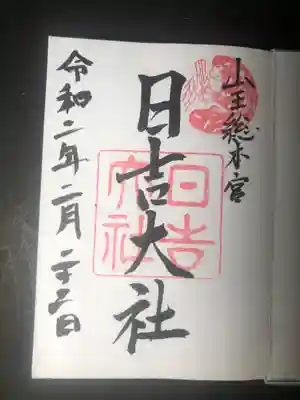 山王総本宮
日吉大社
日吉大社
令和二年二月二十二日